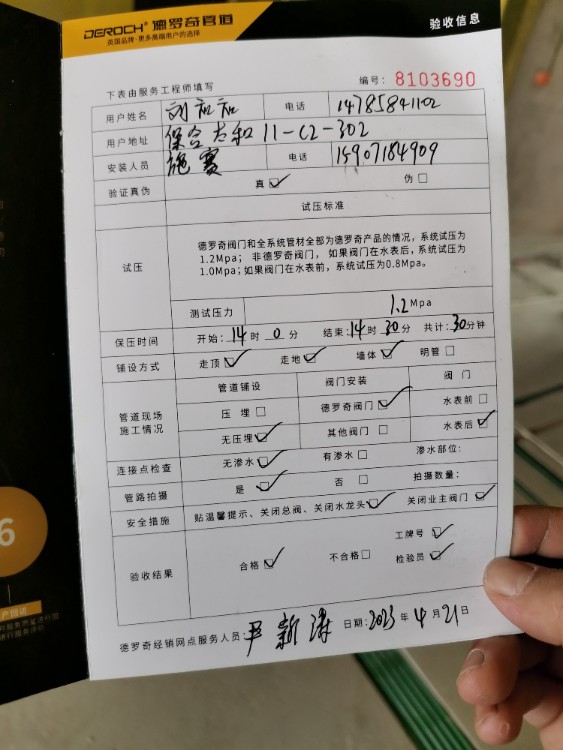 DEROCH® 德罗奇管道
英国品牌·更多高端用户的选择
验收信息
下表由服务工程师填写 编号：8103690
用户姓名 刘 电话 14785841102
用户地址 保合太和 11-C2-302
安装人员 施赛 电话 15907184909
验证真伪 真☑ 伪☐
试压标准
试压
德罗奇阀门和全系统管材全部为德罗奇产品的情况，系统试压为
1.2Mpa； 非德罗奇阀门， 如果阀门在水表后，系统试压为
1.0Mpa；如果阀门在水表前，系统试压为0.8Mpa。
测试压力 1.2 Mpa
保压时间 开始：14 时 0 分 结束：14 时 30 分 共计：30 分钟
铺设方式 走顶☑ 走地☑ 墙体☑ 明管☐
管道铺设 阀门安装 阀 门
管道现场
施工情况
压 埋☐ 德罗奇阀门☑ 水表前☐
无压埋☑ 其他阀门☐ 水表后☑
连接点检查 无渗水☑ 有渗水☐ 渗水部位：
管路拍摄 是☑ 否☐ 拍摄数量：
安全措施 贴温馨提示、关闭总阀、关闭水龙头☑ 关闭业主阀门☑
验收结果 合格☑ 不合格☐ 工牌号☑
检验员☑
德罗奇经销网点服务人员：尹新 日期：2023 年 4 月 21 日
6